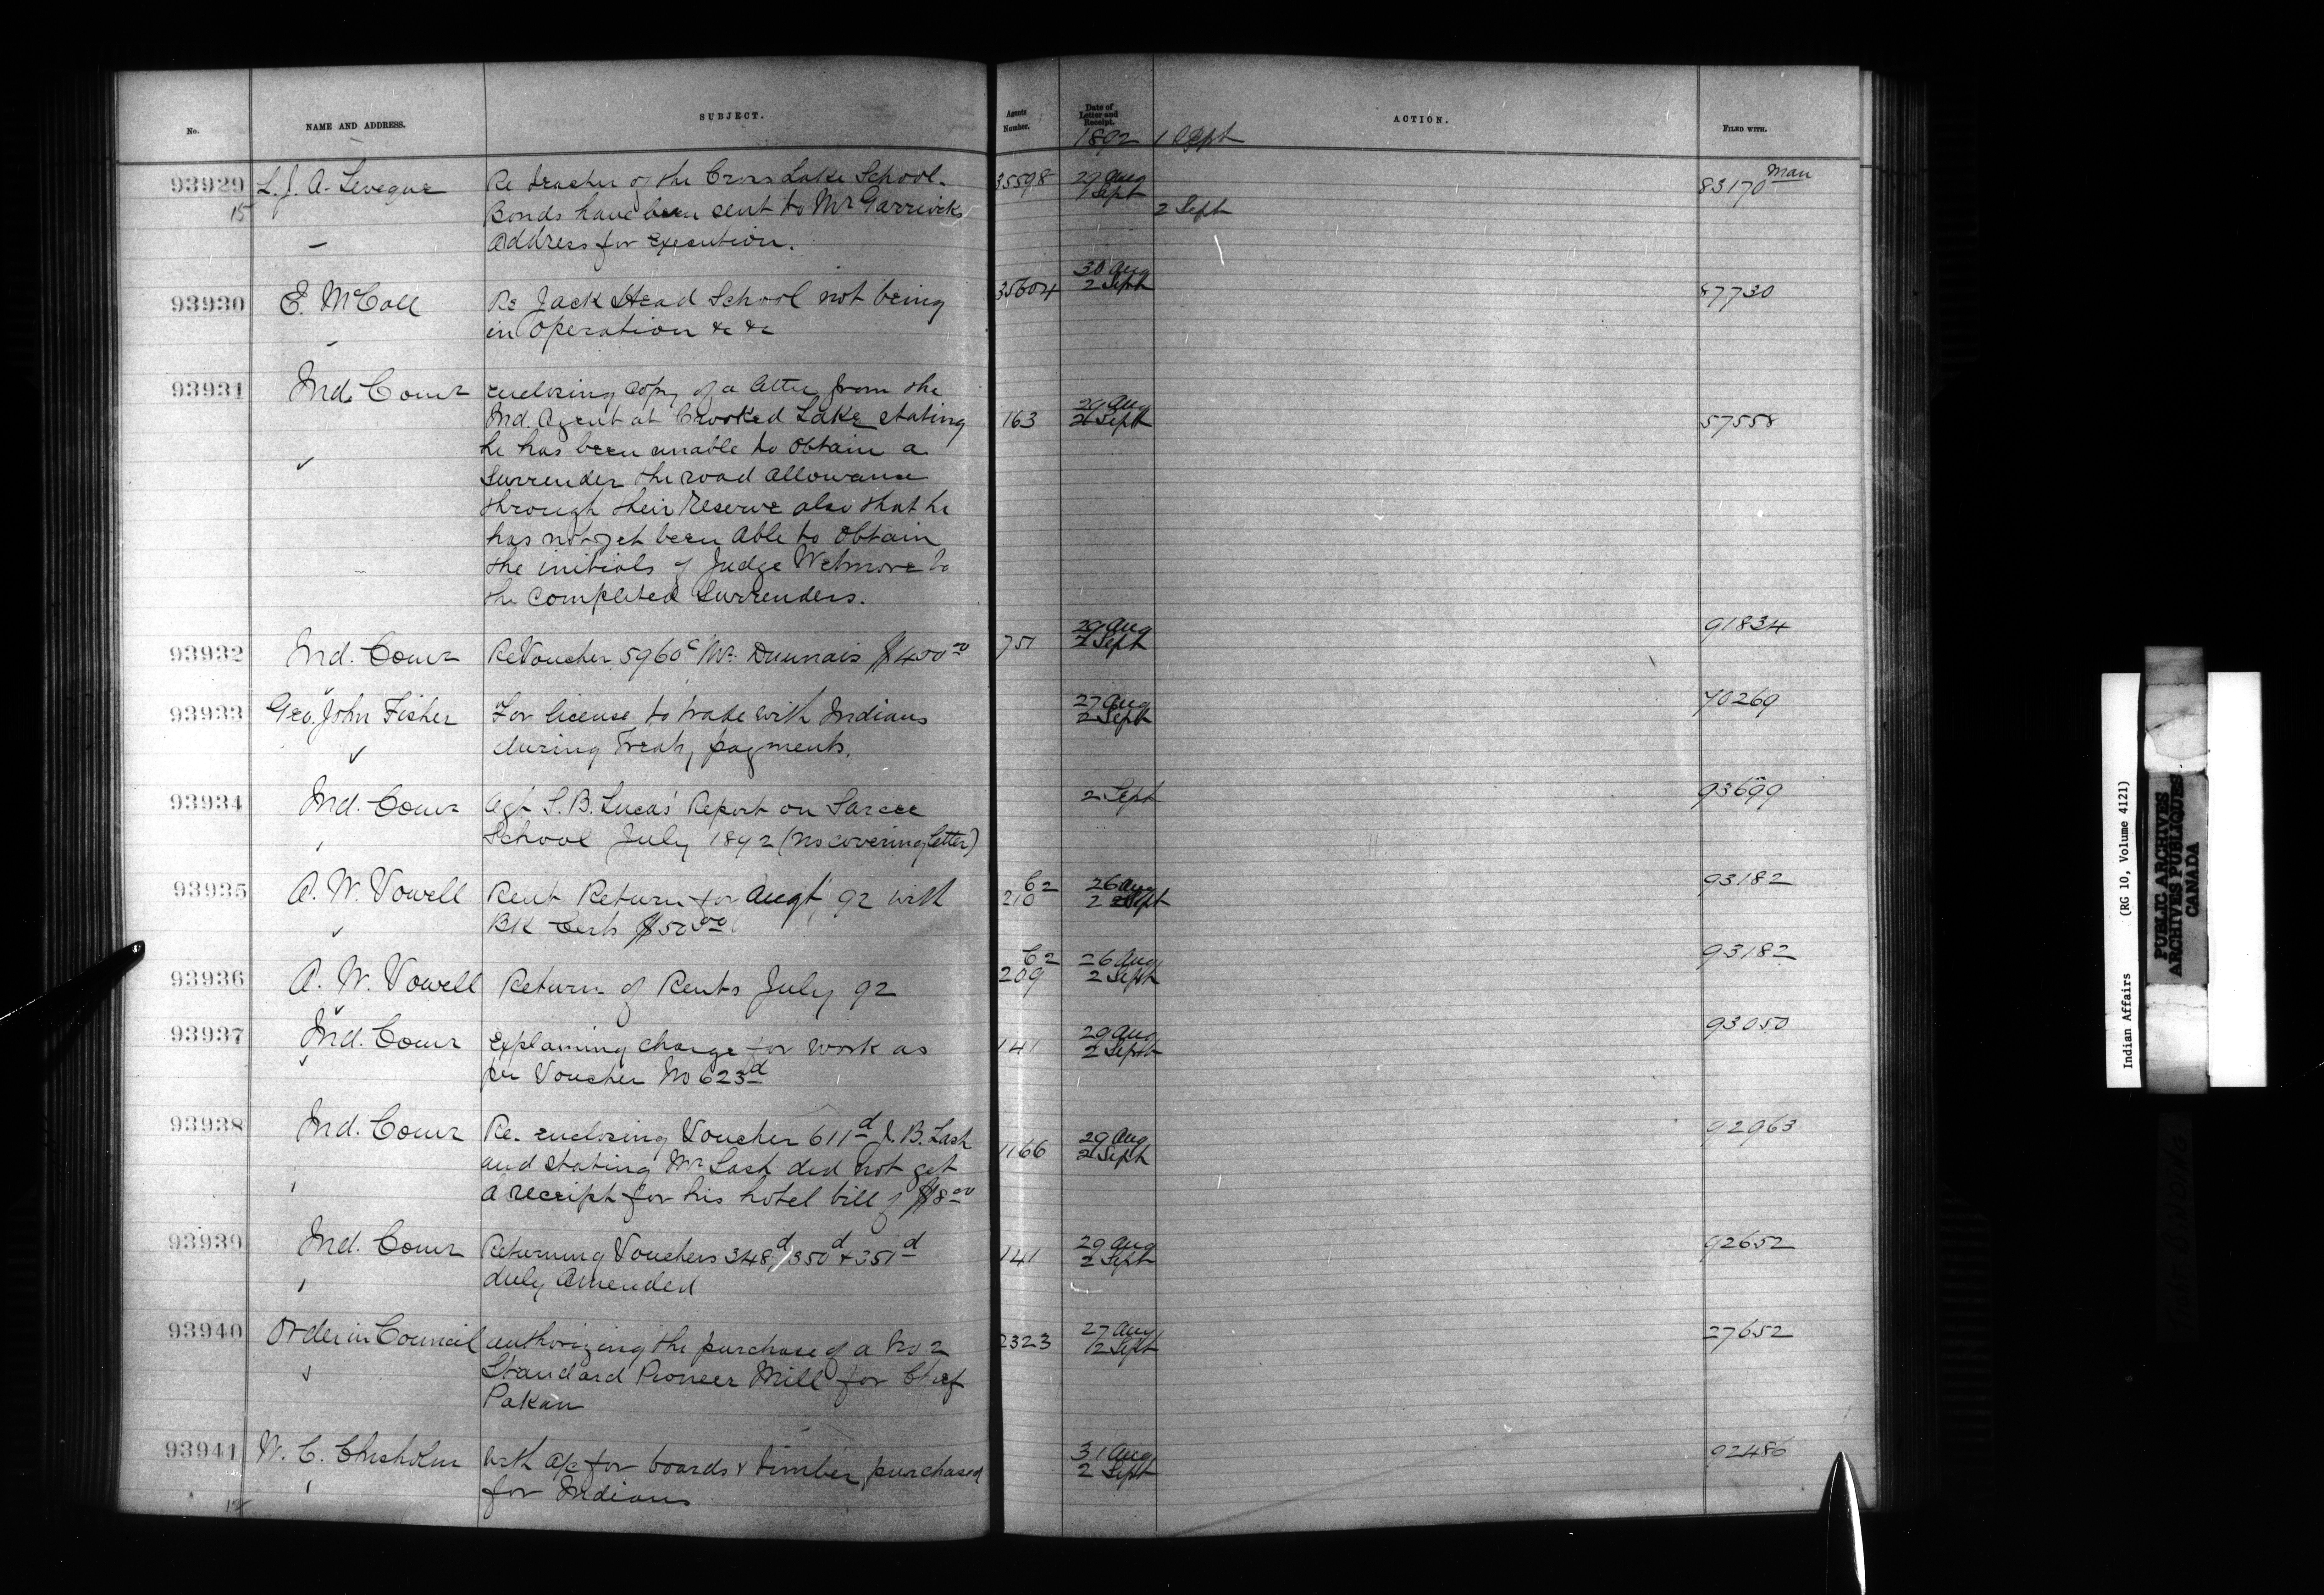 No. NAME AND ADDRESS. SUBJECT. Agents Number. Date of Letter and Receipt. ACTION. FILED WITH.
1892 1 Sept
93929 L. J. A. Leveque Re teacher of the Cross Lake School. 35598 29 Aug 83170 Man
15 Bonds have been sent to Mr Garriocks 1 Sept 2 Sept
Address for Execution.
93930 E. McColl Re Jack Head School not being 35604 30 Aug 87730
in operation &c &c 2 Sept
93931 Ind. Comr enclosing copy of a letter from the
Ind. Agent at Crooked Lake stating 163 29 Aug 57558
he has been unable to obtain a 2 Sept
Surrender the road allowance
through their Reserve also that he
has not yet been able to obtain
the initials of Judge Wetmore to
the completed Surrenders.
93932 Ind. Comr Re Voucher 5960c Mr. Daunais $400.00 751 29 Aug 91834
2 Sept
93933 Geo. John Fisher For license to trade with Indians 27 Aug 70269
during Treaty payments. 2 Sept
93934 Ind. Comr Agt S. B. Lucas' Report on Sarcee 2 Sept 93699
School July 1892 (no covering letter)
93935 A. W. Vowell Rent Return for Augt 92 with C2 26 Aug 93182
BK Certs $50.00 210 2 Sept
93936 A. W. Vowell Return of Rents July 92 C2 26 Aug 93182
209 2 Sept
93937 Ind. Comr Explaining charge for work as 141 29 Aug 93050
per Voucher No 623d 2 Sept
93938 Ind. Comr Re. enclosing Voucher 611d J. B. Lash 29 Aug 92963
and stating Mr Lash did not get 1166 2 Sept
a receipt for his hotel bill of $8.00
93939 Ind. Comr Returning Vouchers 348d, 350d & 351d 141 29 Aug 92652
duly Amended 2 Sept
93940 Order in Council authorizing the purchase of a No 2 2323 27 Aug 27652
Standard Pioneer Mill for Chief 2 Sept
Pakan
93941 W. C. Chisholm with a/c for boards & timber purchased 31 Aug 92486
for Indians 2 Sept
12
Indian Affairs (RG 10, Volume 4121)
PUBLIC ARCHIVES
ARCHIVES PUBLIQUES
CANADA